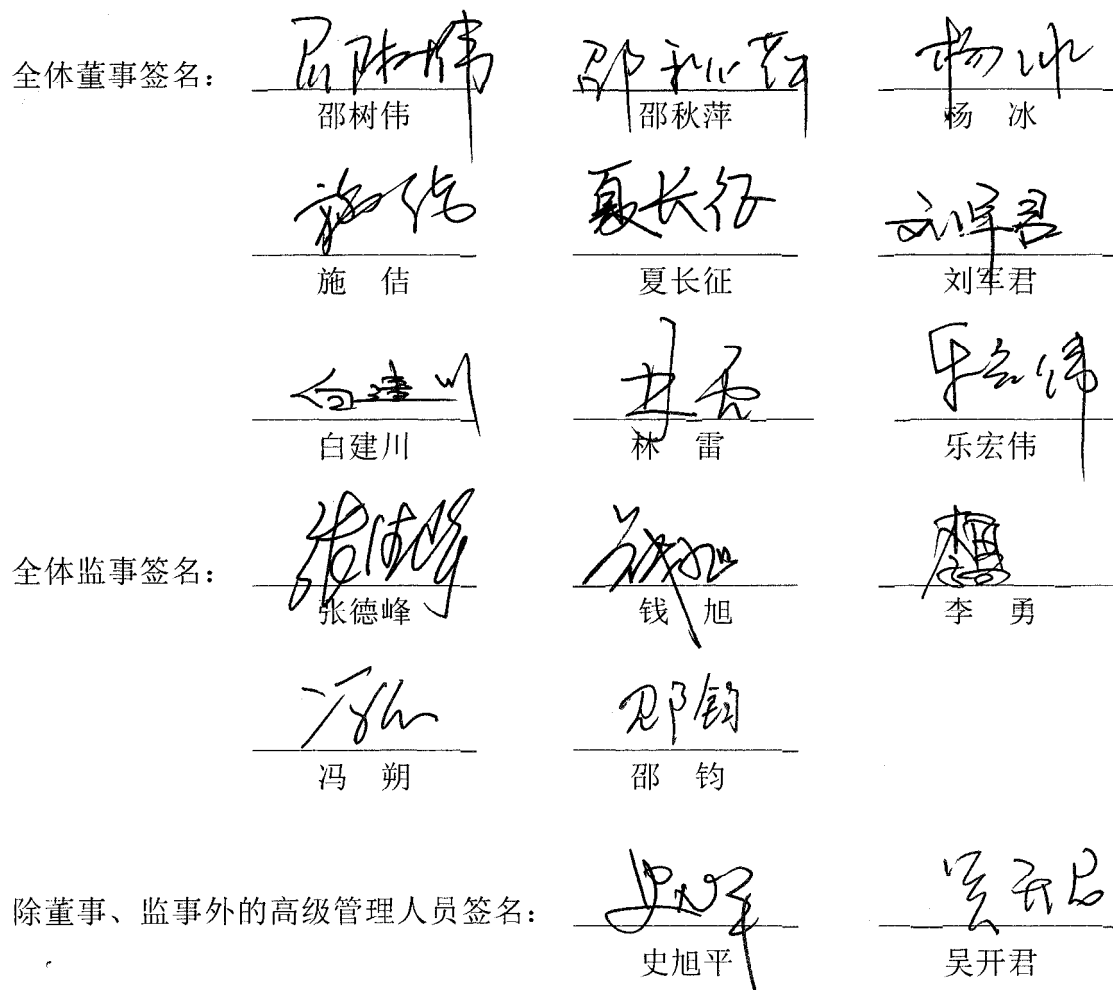 全体董事签名：
邵树伟 邵秋萍 杨 冰
施 佶 夏长征 刘军君
白建川 林 雷 乐宏伟
全体监事签名：
张德峰 钱 旭 李 勇
冯 朔 邵 钧
除董事、监事外的高级管理人员签名：
史旭平 吴开君